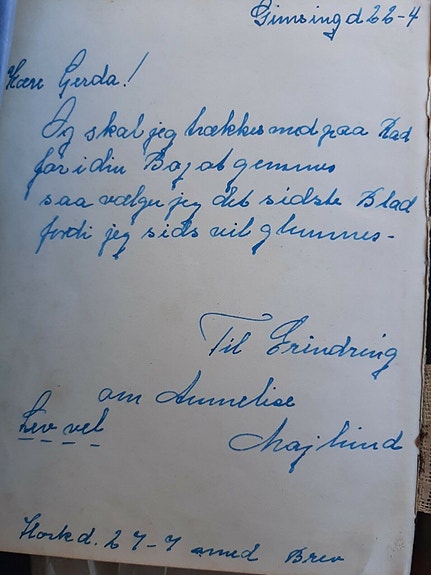 Gimsing d 22-4
Kære Gerda!
Og skal jeg trækkes med paa Rad
for i din Bog at gemmes
saa vælger jeg det sidste Blad
fordi jeg sids vil glemmes-
Til Erindring
om Annelise
Lev vel
Majlund
d. 27-7 med Brev